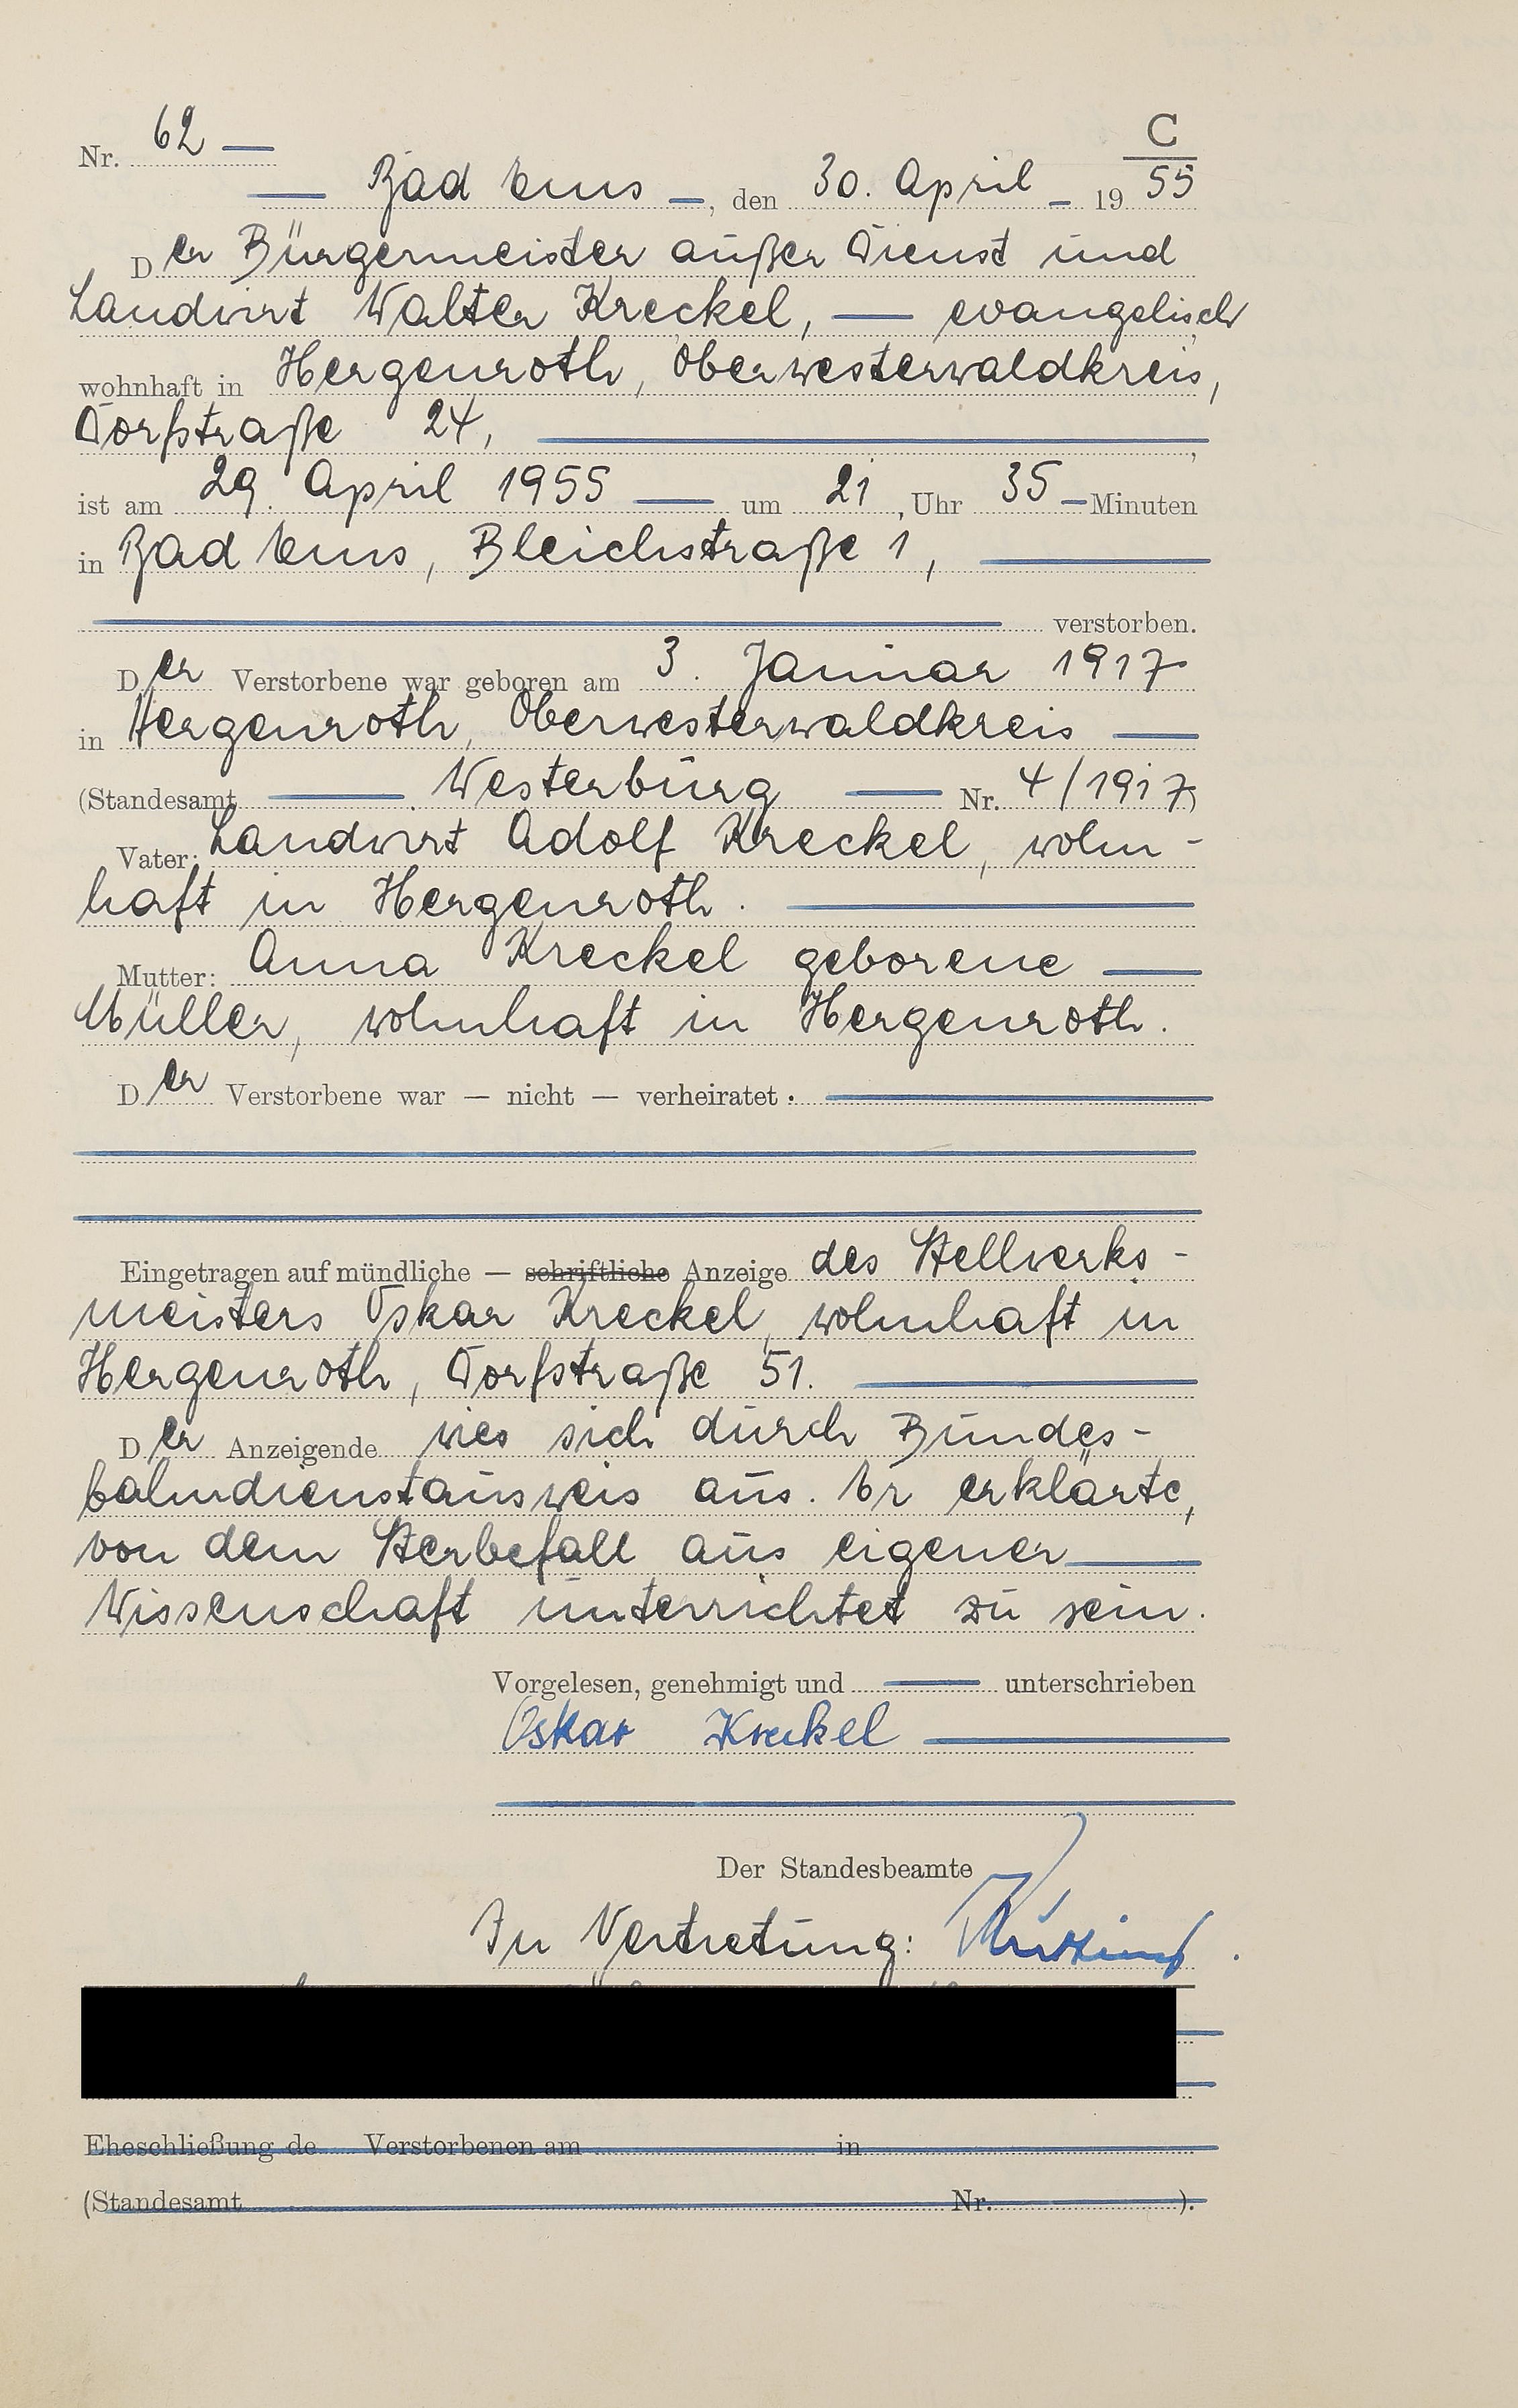 C
Nr. 62 —
— Bad Ems —, den 30. April — 19 55
Der Bürgermeister außer Dienst und
Landwirt Walter Kreckel, — evangelisch,
wohnhaft in Hergenroth, Oberwesterwaldkreis,
Dorfstraße 24,
ist am 29. April 1955 — um 21 Uhr 35 — Minuten
in Bad Ems, Bleichstraße 1, —
verstorben.
Der Verstorbene war geboren am 3. Januar 1917
in Hergenroth, Oberwesterwaldkreis —
(Standesamt — Westerburg — Nr. 4/1917)
Vater: Landwirt Adolf Kreckel, wohn-
haft in Hergenroth. —
Mutter: Anna Kreckel geborene —
Müller, wohnhaft in Hergenroth.
Der Verstorbene war — nicht — verheiratet. —
Eingetragen auf mündliche — schriftliche Anzeige des Stellwerks-
meisters Oskar Kreckel, wohnhaft in
Hergenroth, Dorfstraße 51. —
Der Anzeigende wies sich durch Bundes-
bahndienstausweis aus. Er erklärte,
von dem Sterbefall aus eigener —
Wissenschaft unterrichtet zu sein.
Vorgelesen, genehmigt und — unterschrieben
Oskar Kreckel —
Der Standesbeamte
In Vertretung:
Eheschließung de Verstorbenen am in
(Standesamt Nr. ).